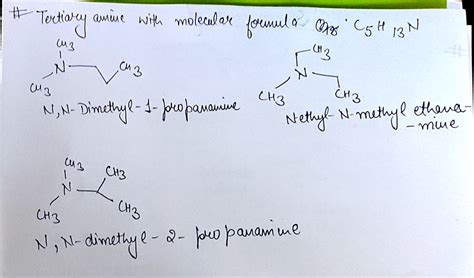 # Tertiary amine with molecular formula C5H13N
CH3
N
CH3
CH3
N,N-Dimethyl-1-propanamine
CH3
N
CH3
CH3
Nethyl-N-methyl ethana
-mine
CH3
CH3
N
CH3
CH3
N,N-dimethyl-2-propanamine